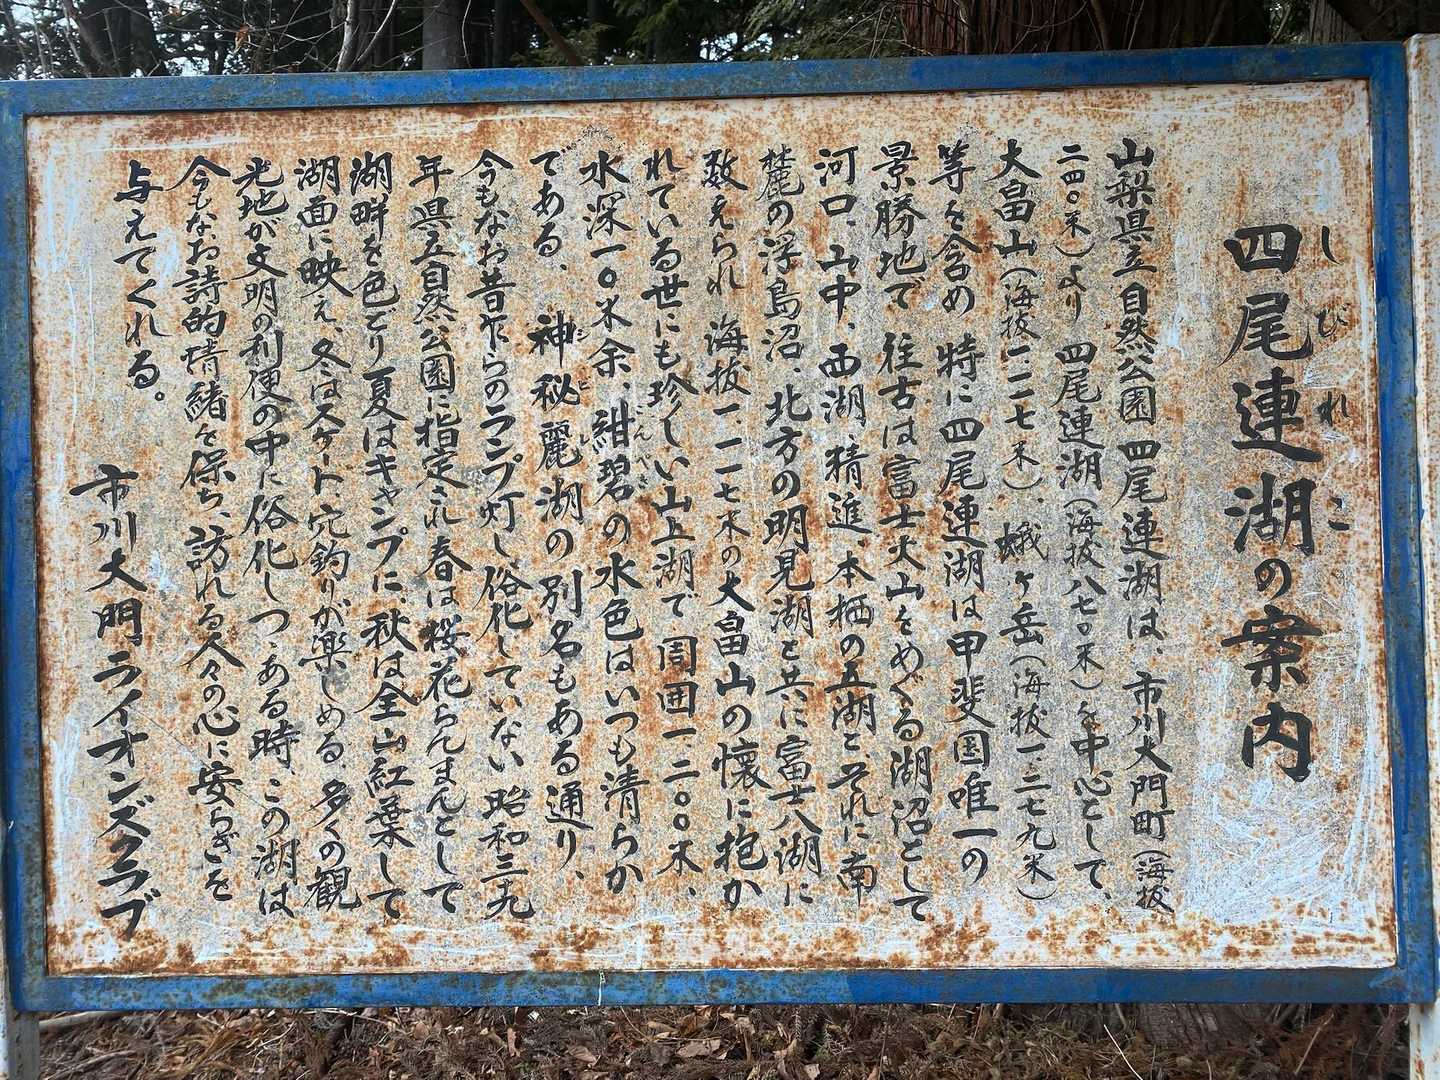 四尾連湖の案内
しびれこ
山梨県立自然公園 四尾連湖は、市川大門町（海抜
二四〇米）より 四尾連湖（海抜八七〇米）を中心として、
大畠山（海抜一一一七米）、蛾ヶ岳（海抜一、二七九米）
等を含め 特に四尾連湖は甲斐国唯一の
景勝地で 往古は富士火山をめぐる湖沼として
河口、山中、西湖、精進、本栖の五湖と それに南
麓の浮島沼、北方の明見湖と共に富士八湖に
数えられ 海抜一、一一七米の大畠山の懐に抱か
れている世にも珍しい山上湖で 周囲一、二〇〇米、
水深一〇米余、紺碧の水色はいつも清らか
こんぺき
である、神秘麗湖の別名もある通り、
しびれこ
今もなお昔乍らのランプ灯し、俗化していない 昭和三九
年県立自然公園に指定され 春は桜花らんまんとして
湖畔を色どり 夏はキャンプに 秋は全山紅葉して
湖面に映え、冬はスケート、穴釣りが楽しめる、多くの観
光地が文明の利便の中に俗化しつゝある時、この湖は
今もなお詩的情緒を保ち、訪れる人々の心に安らぎを
与えてくれる。
市川大門ライオンズクラブ